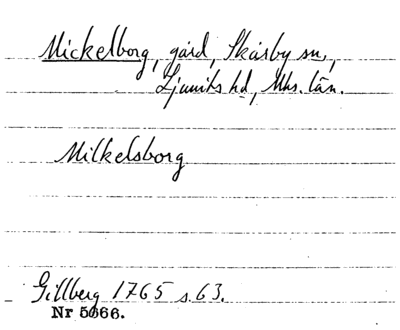 Mickelborg, gård, Skårby sn,
Ljunits hd, Mhs. län.
Milkelsborg
Gillberg 1765 s. 63.
Nr 5066.